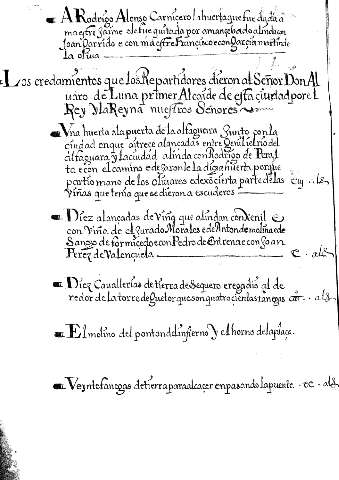 A Rodrigo Alonso Carnicero la huerta que fue dada a
maestre Jaime e le fue quitada por amancebado alinda con
Joan Garrido e con maestre Francisco e con garcia martin de
la oliva
Los credamientos que los Repartidores dieron al Señor Don Al
varo de Luna primer Alcaide de esta ciudad por el
Rey y la Reyna nuestros Señores
Una huerta a la puerta de la altaguara junto con la
ciudad en que ay trece alançadas entre genil el rio del
altaguara y la ciudad alinda con Rodrigo de Peral
ta e con el camino e de para le la diga huerta porque
partio mano de los olivares e dexo cierta parte de las
viñas que tenia que se dieron a escuderos
Diez alançadas de Viña que alindan con Xenil e
con Viña de el Jurado Morales e de Anton de molina de
Sancho de formicedo e con Pedro de Entrena e con Joan
Perez de Valençuela
Diez Cavallerias de tierra de Sequero e regadio al de
redor de la torre de huelor que son quatrocientas fanegas
El molino del ponton del infierno y el horno de la plaça
Veynte fanegas de tierra para alcaçer en pasando la puente